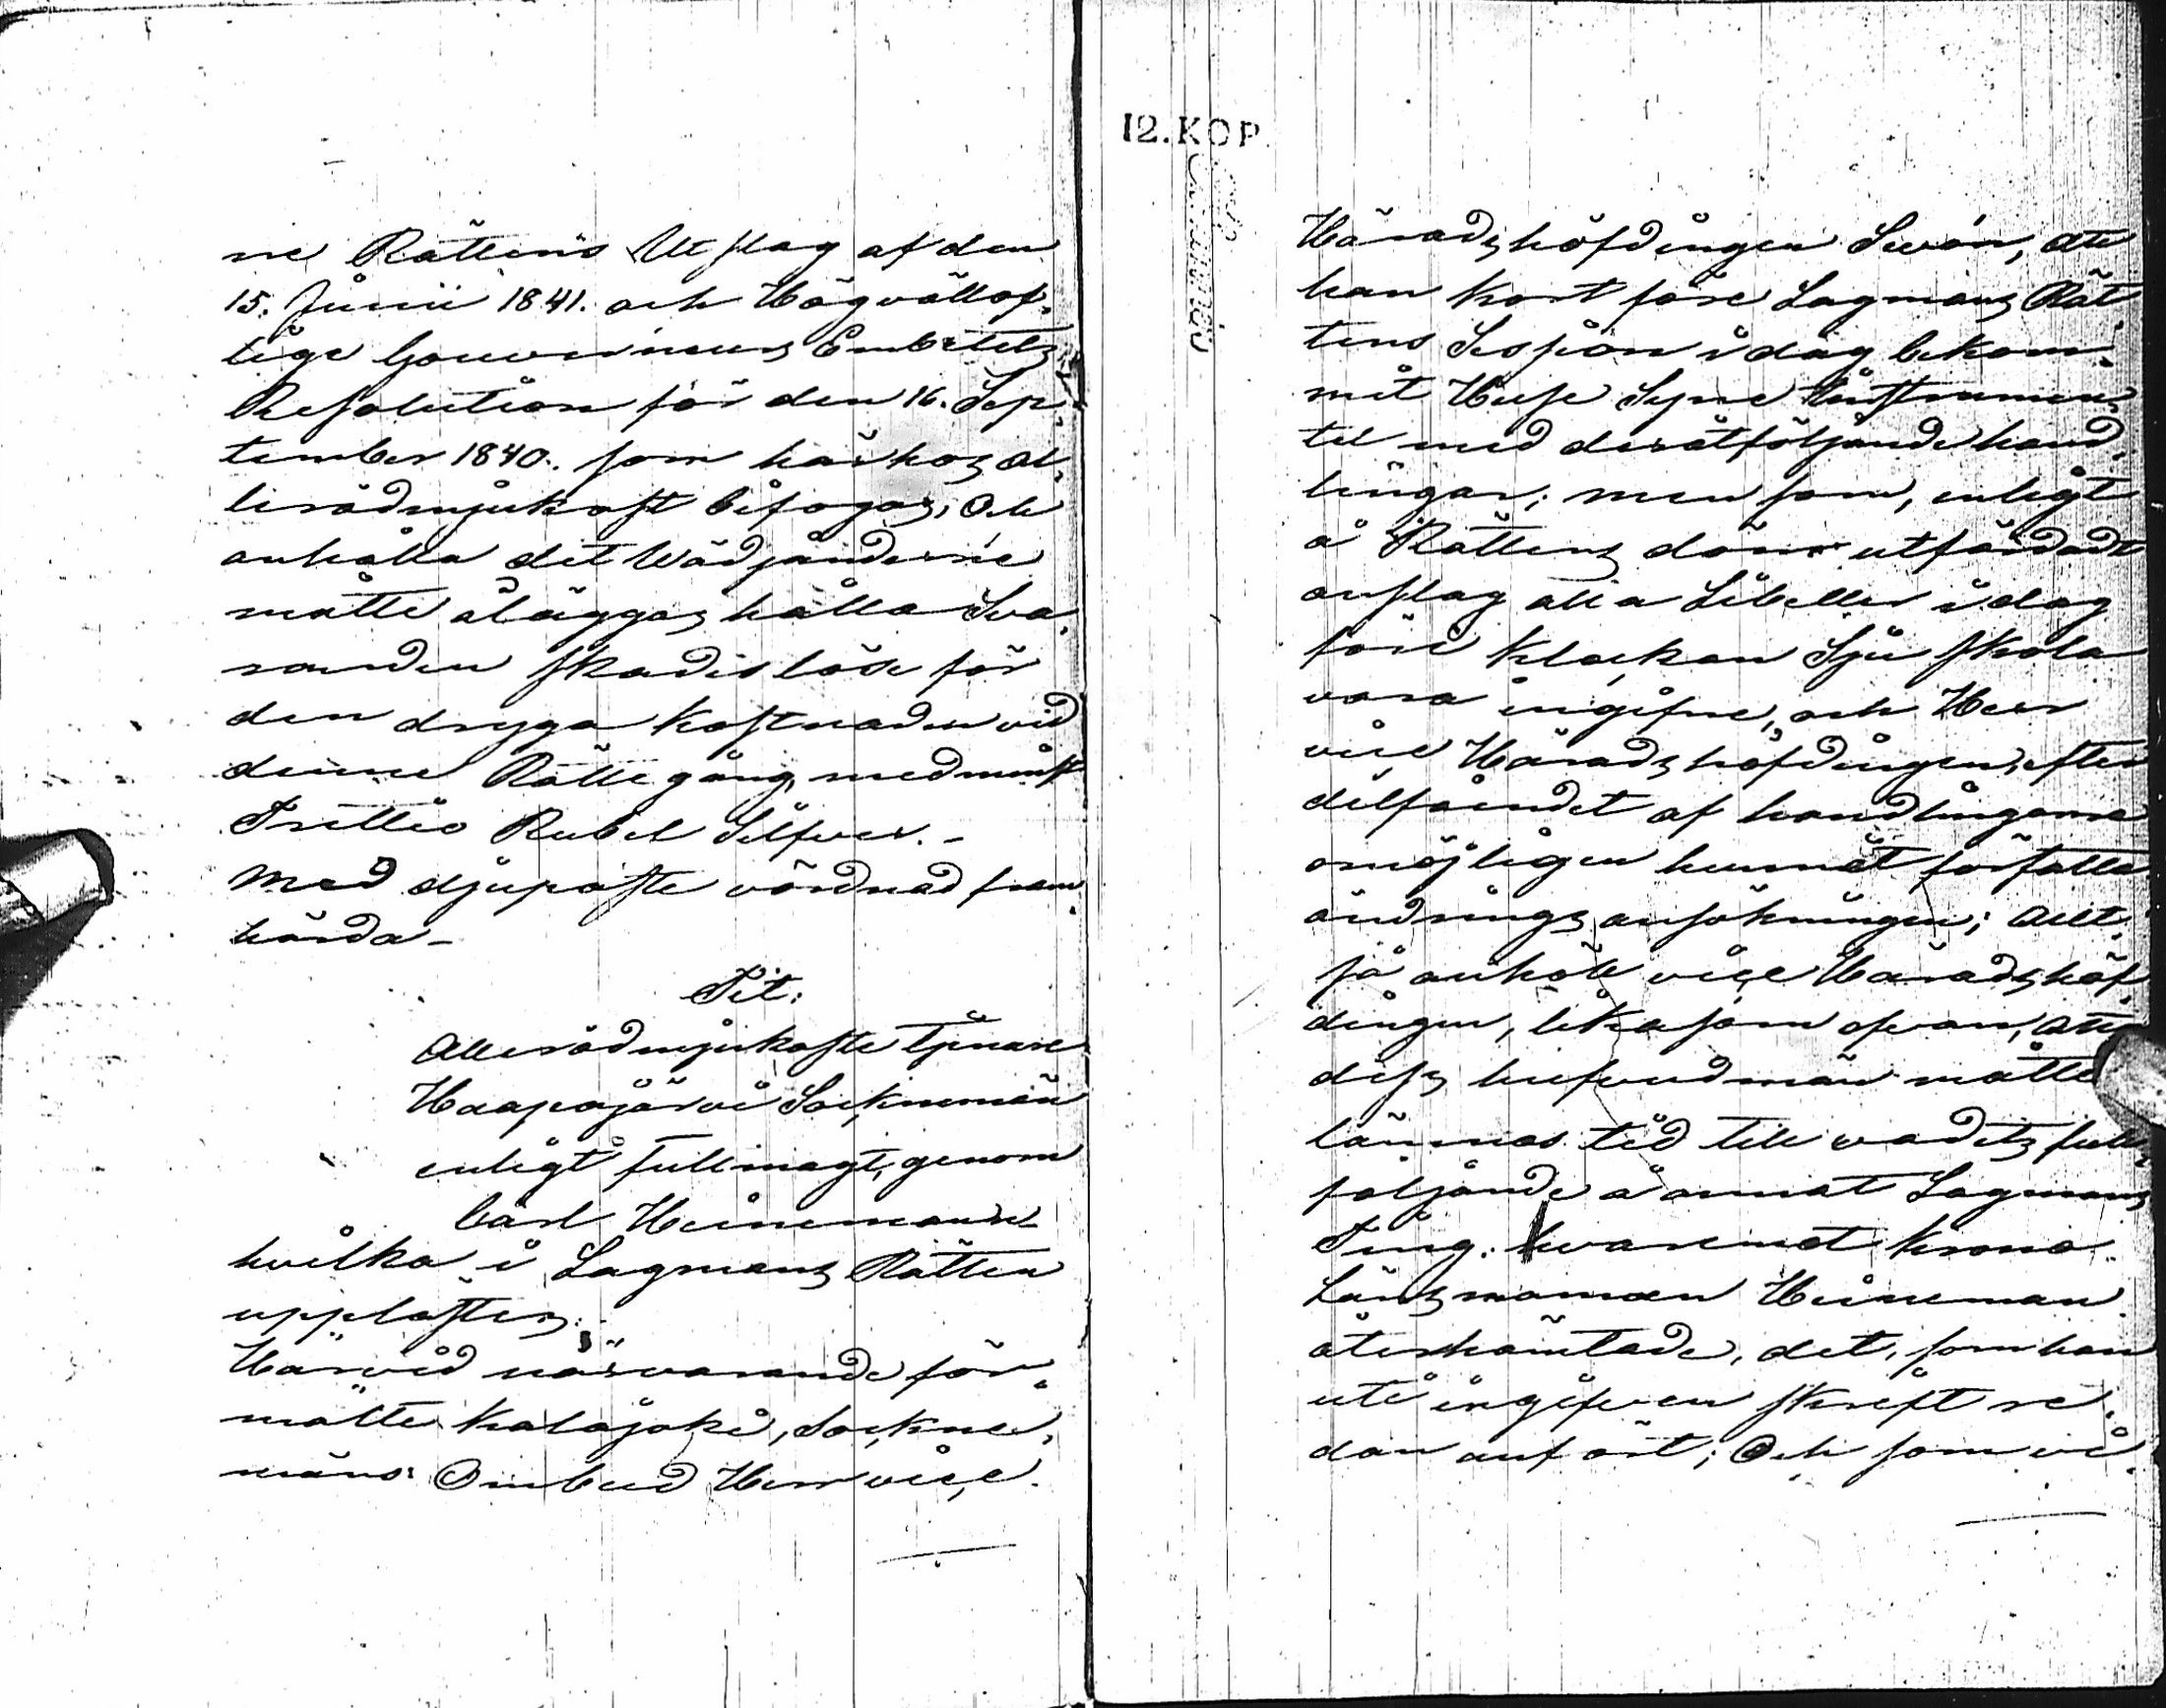 ne Rättens Utslag af den
15. Junii 1841. och Högvällof-
lige Gouverneurs Embetets
Resolution för den 16. Sep-
tember 1840. som härhos al-
lerödmjukast bifogas, Och
anhålla det Wädjanderne
måtte åläggas hålla Sva-
randen skadeslöse för
den dryga kostnaden vid
denne Rättegång, med minst
Trettio Rubel Silfver.-
Med djupaste vördnad fram-
härda-
Tit:
Allerödmjukaste tjenare
Haapajärvi Sockneman
enligt fullmagt, genom
Carl Heineman
hvilka i Lagmans Rätten
upplästes.
Härvid närvarande för-
mälte Kalajoki, Sockne-
mäns Ombud Herr vice
12.KOP.
Häradshöfdingen Svan, att
han kort före Lagmans Rät-
tens Session i dag bekom-
mit Huse Syne Instrumen-
tet med deråtföljande hand-
lingar; men som, enligt
å Rättens dörr utfärdadt
anslag alla Libeller i dag
före Klockan Sju skola
vara ingifne, och Herr
vice Häradshöfdingen, efter
delfåendet af handlingarne
omöjligen hunnit författa
ändrings ansökningen; Allt-
så anhöll vice Häradshöf-
dingen, likasom ofvan, att
dess hufvudmän måtte
lämnas tid till vadets full-
följande å annat Lagmans
Ting. hvaremot Krono
Länsmannen Heineman
återhämtade, det, som han
uti ingifven skrift re-
dan anfört; Och som vi-